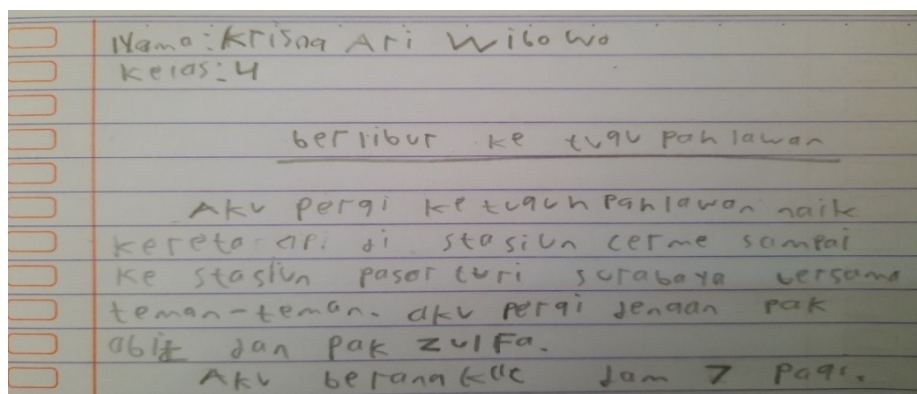 Nama: Krisna Ari Wibowo
Kelas: 4
berlibur ke tugu pahlawan
Aku pergi ke tuguh pahlawan naik
kereta api di stasiun cerme sampai
ke stasiun pasar turi surabaya bersama
teman-teman. aku pergi dengan pak
abit dan pak zulfa.
Aku berangkat jam 7 pagi.